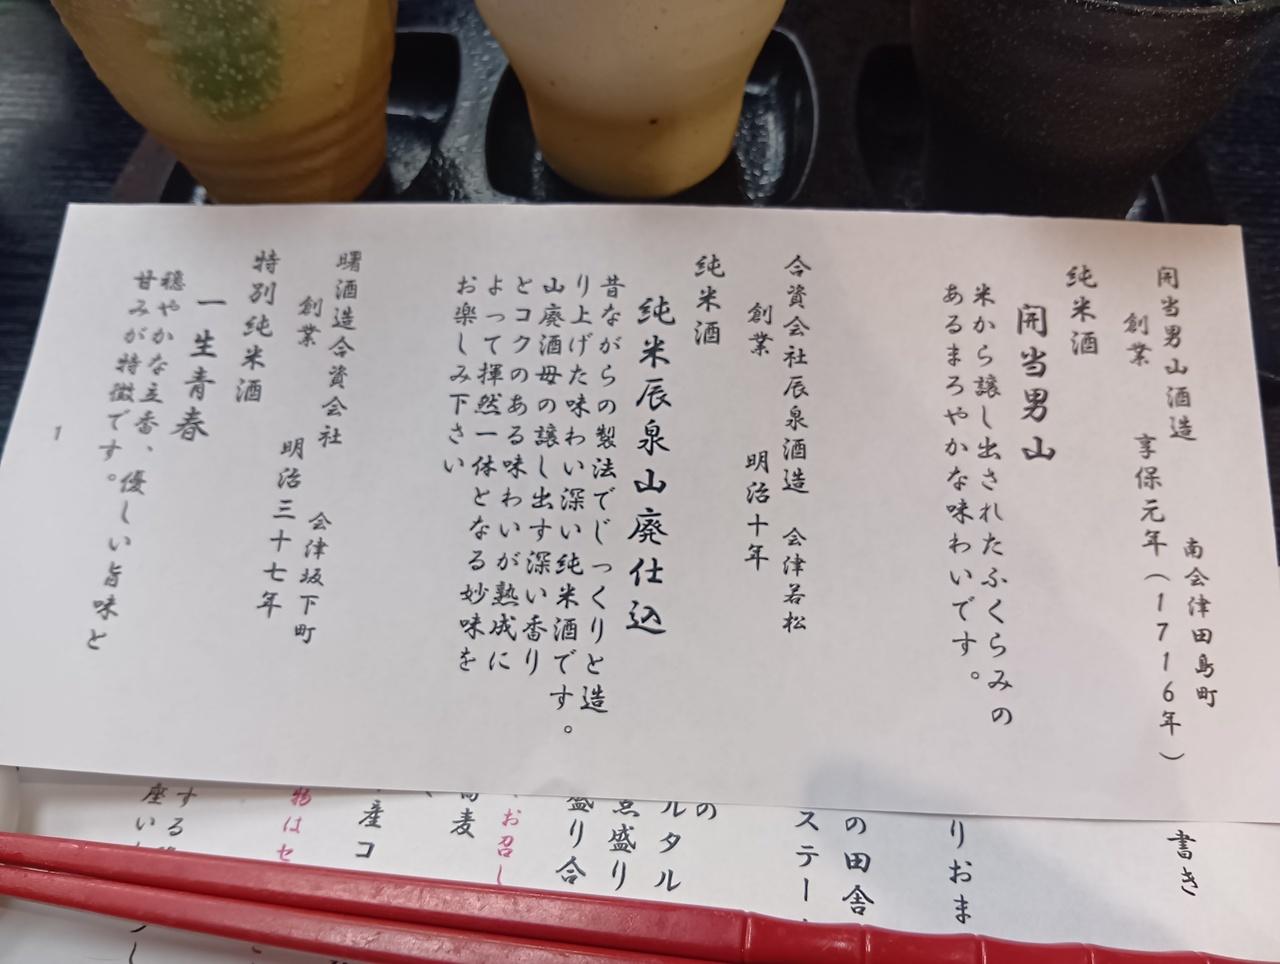 開当男山酒造
南会津田島町
創業 享保元年(1716年)
純米酒
開当男山
米から譲し出されたふくらみの
あるまろやかな味わいです。
合資会社辰泉酒造 会津若松
創業 明治十年
純米酒
純米辰泉山廃仕込
昔ながらの製法でじっくりと造
り上げた味わい深い純米酒です。
山廃酒母の譲し出す深い香り
とコクのある味わいが熟成に
よって揮然一体となる妙味を
お楽しみ下さい
曙酒造合資会社 会津坂下町
創業 明治三十七年
特別純米酒
一生青春
穏やかな立香、優しい旨味と
甘みが特徴です。
1
書き
りおま
の田舎
ステー
の
ルタル
盛り
盛り合
お召し
蕎麦
産コ
物はセ
する
座い